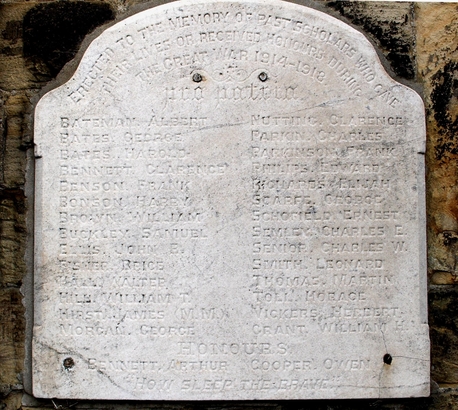 ERECTED TO THE MEMORY OF PAST SCHOLARS WHO GAVE
THEIR LIVES OR RECEIVED HONOURS DURING
THE GREAT WAR 1914-1918
pro patria
BATEMAN, ALBERT
BATES, GEORGE
BATES, HAROLD
BENNETT, CLARENCE
BENSON, FRANK
BONSON, HARRY
BROWN, WILLIAM
BUCKLEY, SAMUEL
ELLIS, JOHN
REICE
HALL, WALTER
HILL, WILLIAM T.
HIRST, JAMES (M.M.)
MORGAN, GEORGE
NUTTING, CLARENCE
PARKIN, CHARLES
PARKINSON, FRANK
PHILIPS, EDWARD
RICHARDS, ELIJAH
SCARFE, GEORGE
SCHOFIELD, ERNEST
SEMLEY, CHARLES E.
SENIOR, CHARLES W.
SMITH, LEONARD
THOMAS, MARTIN
TOLL, HORACE
VICKERS, HERBERT
GRANT, WILLIAM H.
HONOURS
BENNETT, ARTHUR COOPER, OWEN
"HOW SLEEP THE BRAVE"